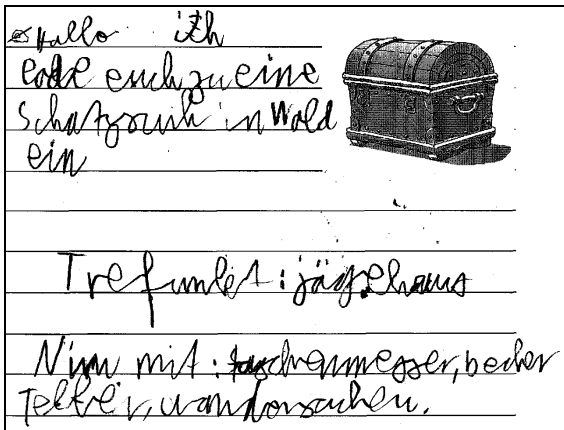 Hallo ich
lade euch zu eine
Schatzsuh in Wald
ein
Trefunkt: jägehaus
Nim mit: taschenmesser, becher
Teller, wandersachen.